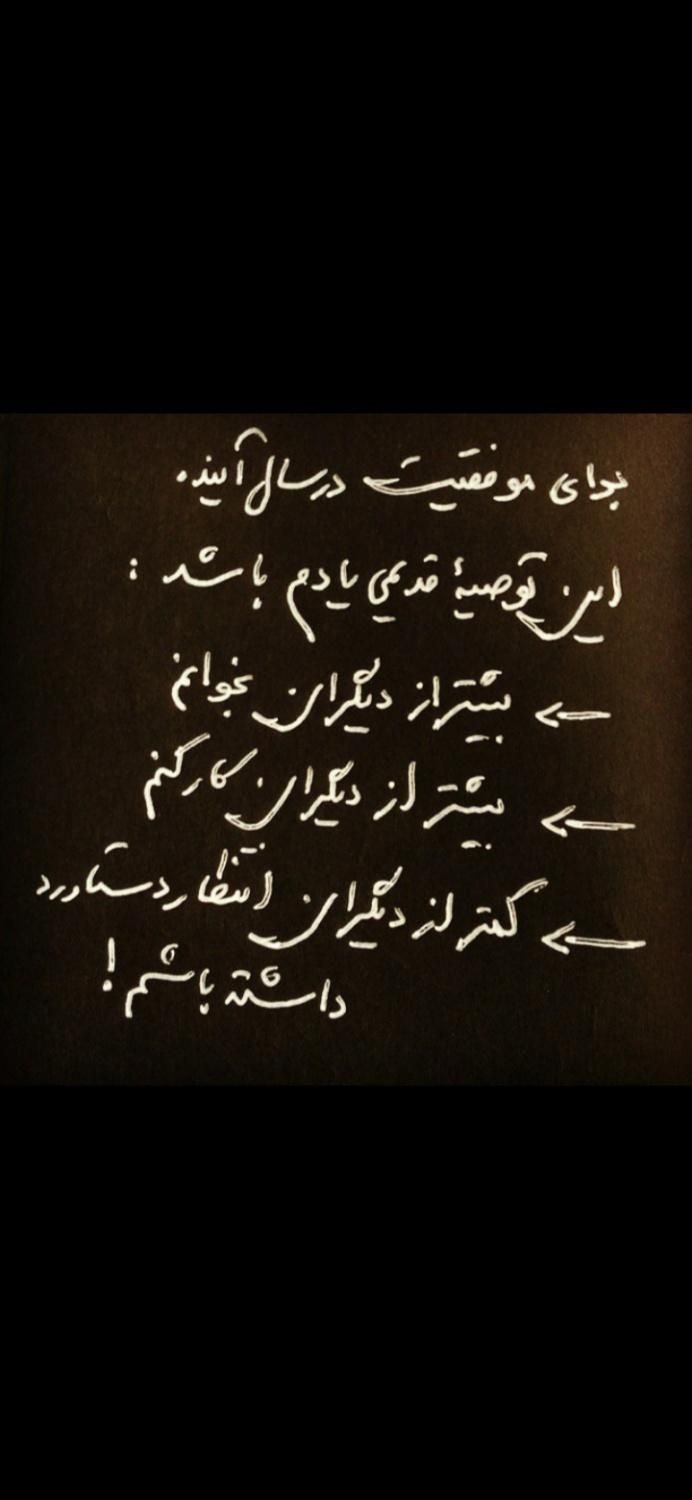 برای موفقیت در سال آینده
این توصیهٔ قدیمی یادم باشد :
← بیشتر از دیگران بخوانم
← بیشتر از دیگران کار کنم
← کمتر از دیگران انتظار دستاورد
داشته باشم !